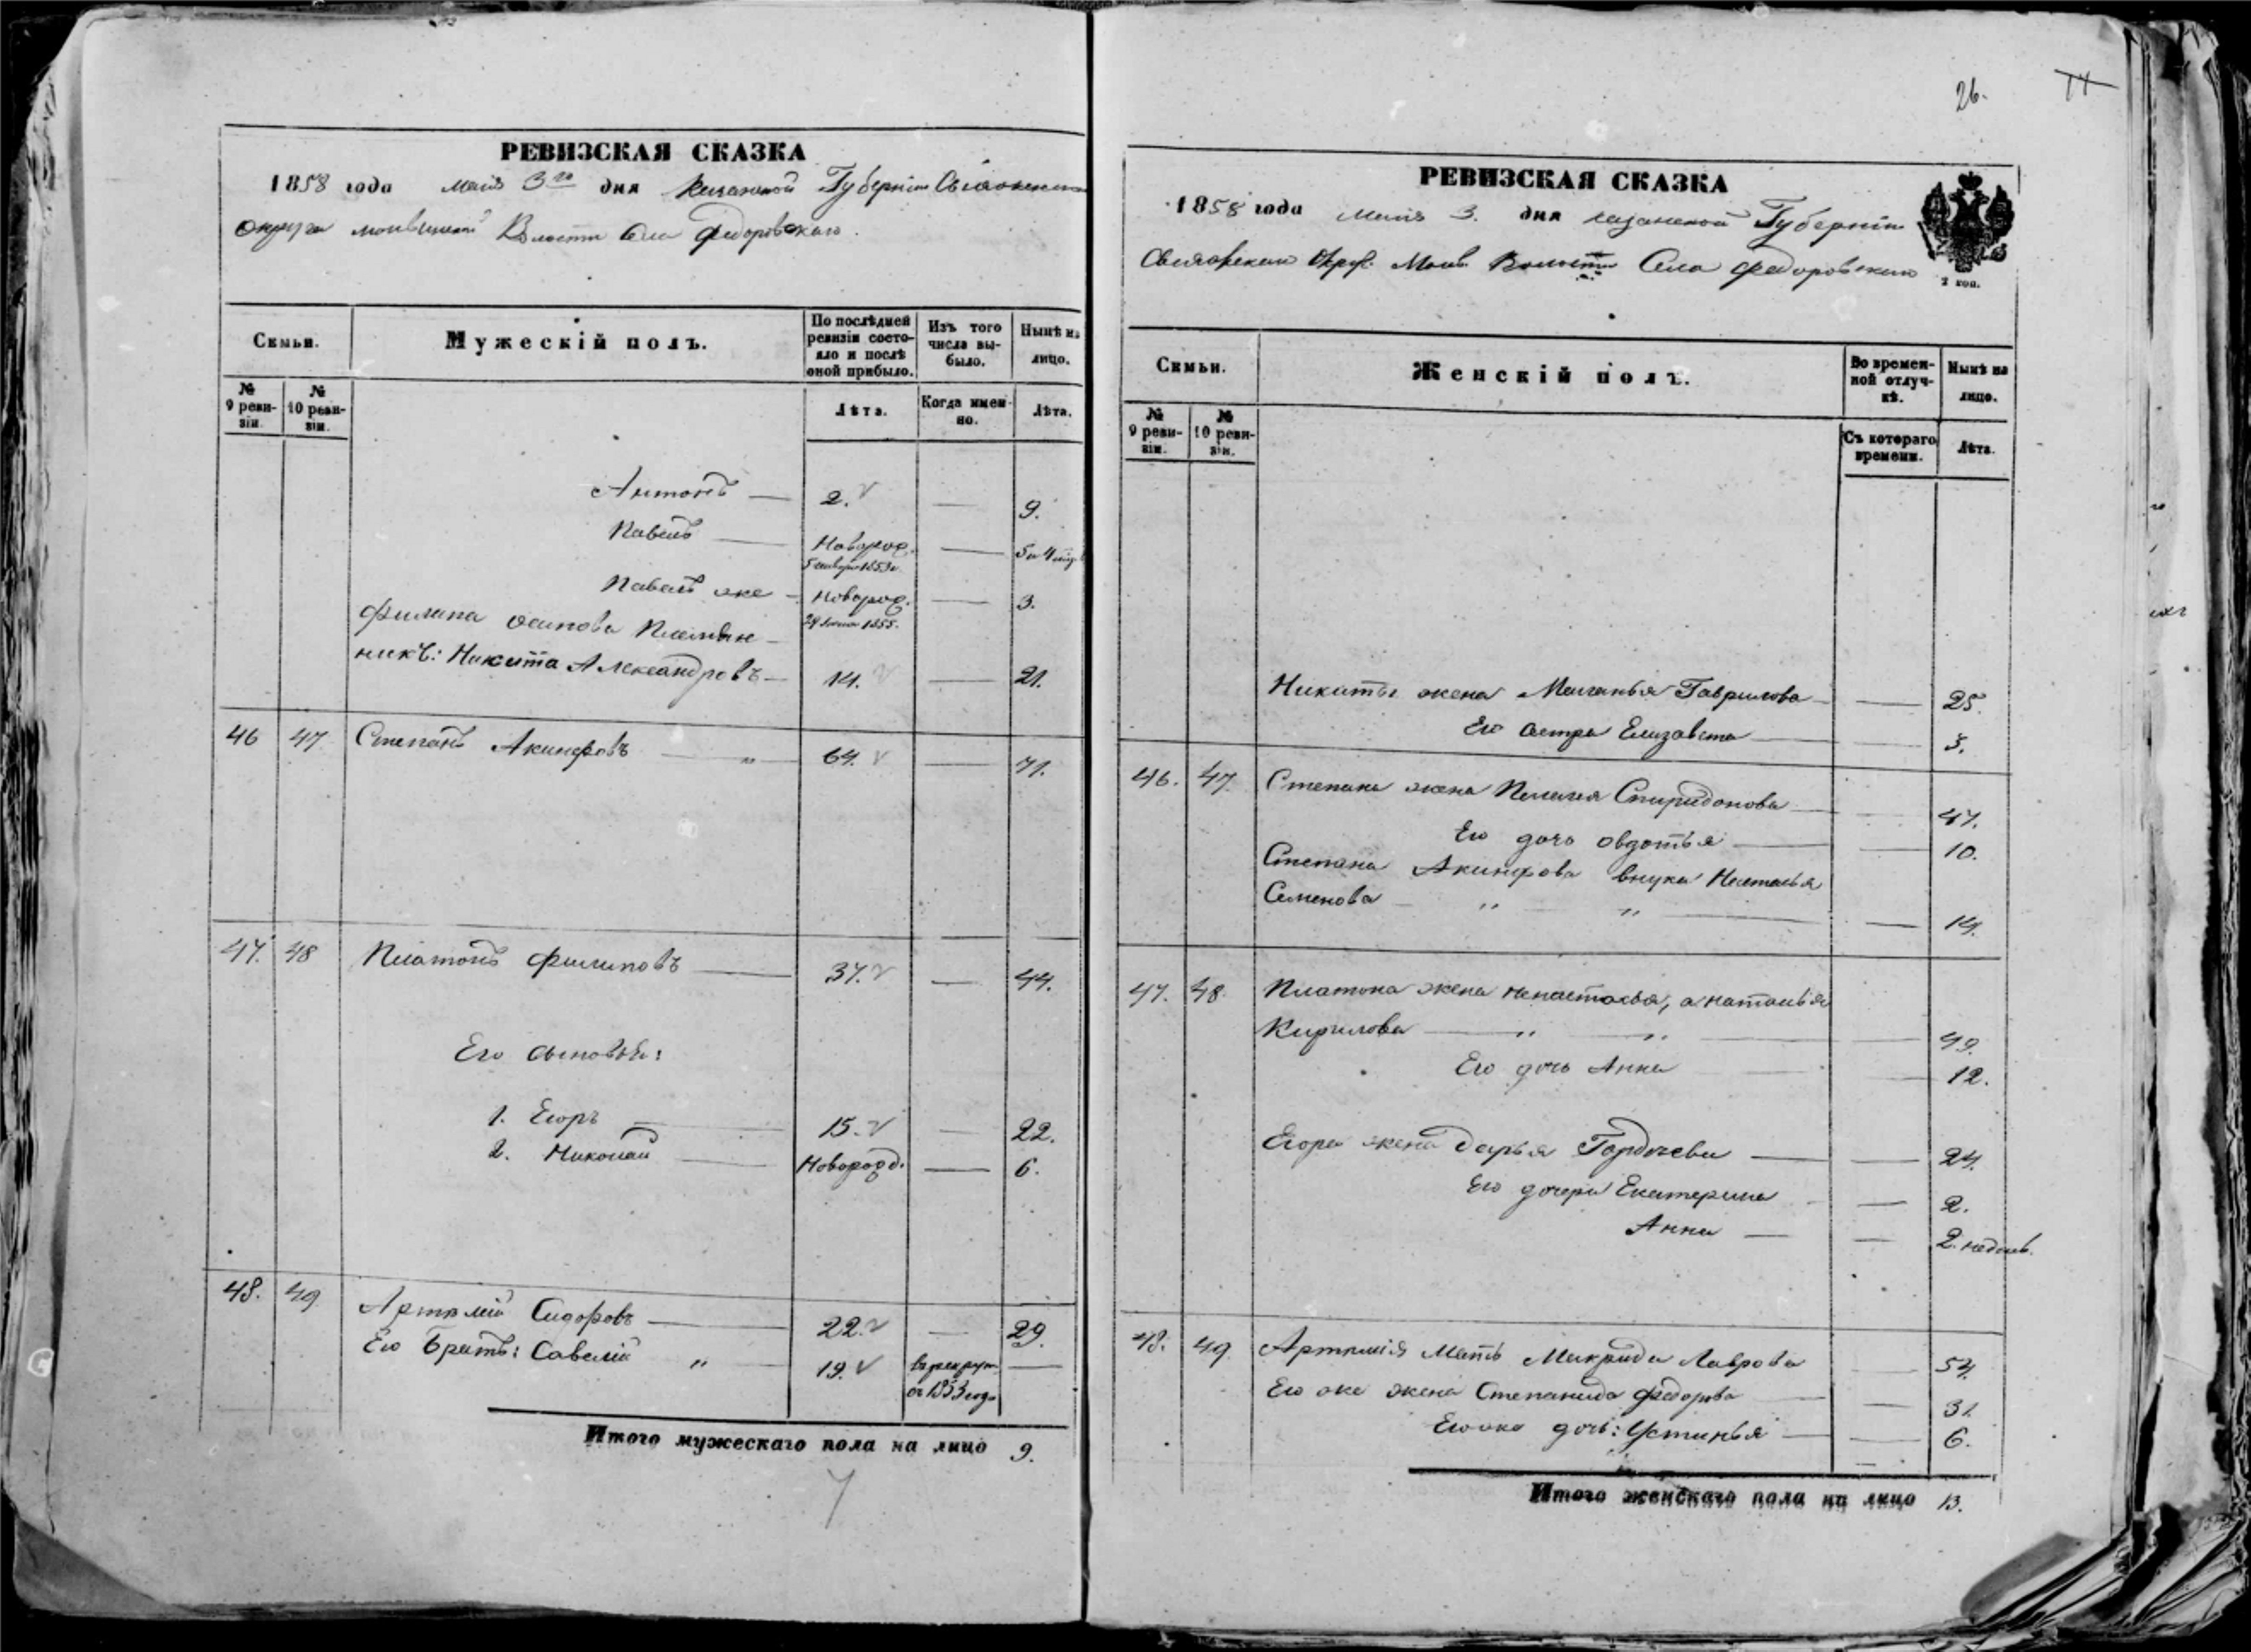 РЕВИЗСКАЯ СКАЗКА
1858 года Маія 3го дня Казанской Губерніи Свіяжскаго
Округа Волости Села Федоровскаго.
Семьи.
Мужескій полъ.
По послѣдней ревизіи состояло и послѣ оной прибыло.
Изъ того числа выбыло.
Нынѣ на лицо.
№ 9 ревизіи.
№ 10 ревизіи.
Лѣта.
Когда именно.
Лѣта.
Антонъ — 2. — 9.
Павелъ — Новорож. — 5 и 4 мѣс.
5 января 1853 г.
Павелъ же — Новорож. — 3.
1855.
Филипа Осипова Племян-
никъ: Никита Александровъ — 14. — 21.
46 47 Степанъ Акинфовъ — „ — 64. — 71.
47. 48 Платонъ Филиповъ — 37. — 44.
Его сыновья:
1. Егоръ — 15. — 22.
2. Николай — Новорожд. — 6.
48. 49 Артемій Сидоровъ — 22. — 29.
Его братъ: Савелій „ — 19. въ рекрут. —
въ 1853 году
Итого мужескаго пола на лицо 9.
7
26.
РЕВИЗСКАЯ СКАЗКА
1858 года Маія 3. дня Казанской Губерніи
Свіяжскаго Окр. Волости Села Федоровскаго
2 коп.
Семьи.
Женскій полъ.
Во временной отлучкѣ.
Нынѣ на лицо.
№ 9 ревизіи.
№ 10 ревизіи.
Съ котораго времени.
Лѣта.
Никиты жена Маланья Гаврилова — — 25.
Его сестра Елизавета — — 3.
46. 47. Степана жена Пелагея Спиридонова — — 47.
Его дочь Овдотья — — 10.
Степана Акинфова внука Наталья
Семенова — „ — „ — — 14.
47. 48. Платона жена Ненасталья, а Наталья
Кирилова — „ — „ — — 49.
Его дочь Анна — — 12.
Егора жена Дарья Гордѣева — — 24.
Его дочери Екатерина — 2.
Анна — — 2. недѣль.
48. 49. Артемія Мать Макрида Лаврова — 54.
Его же жена Степанида Федорова — — 31.
Его же дочь: Устинья — — 6.
Итого женскаго пола на лицо 13.